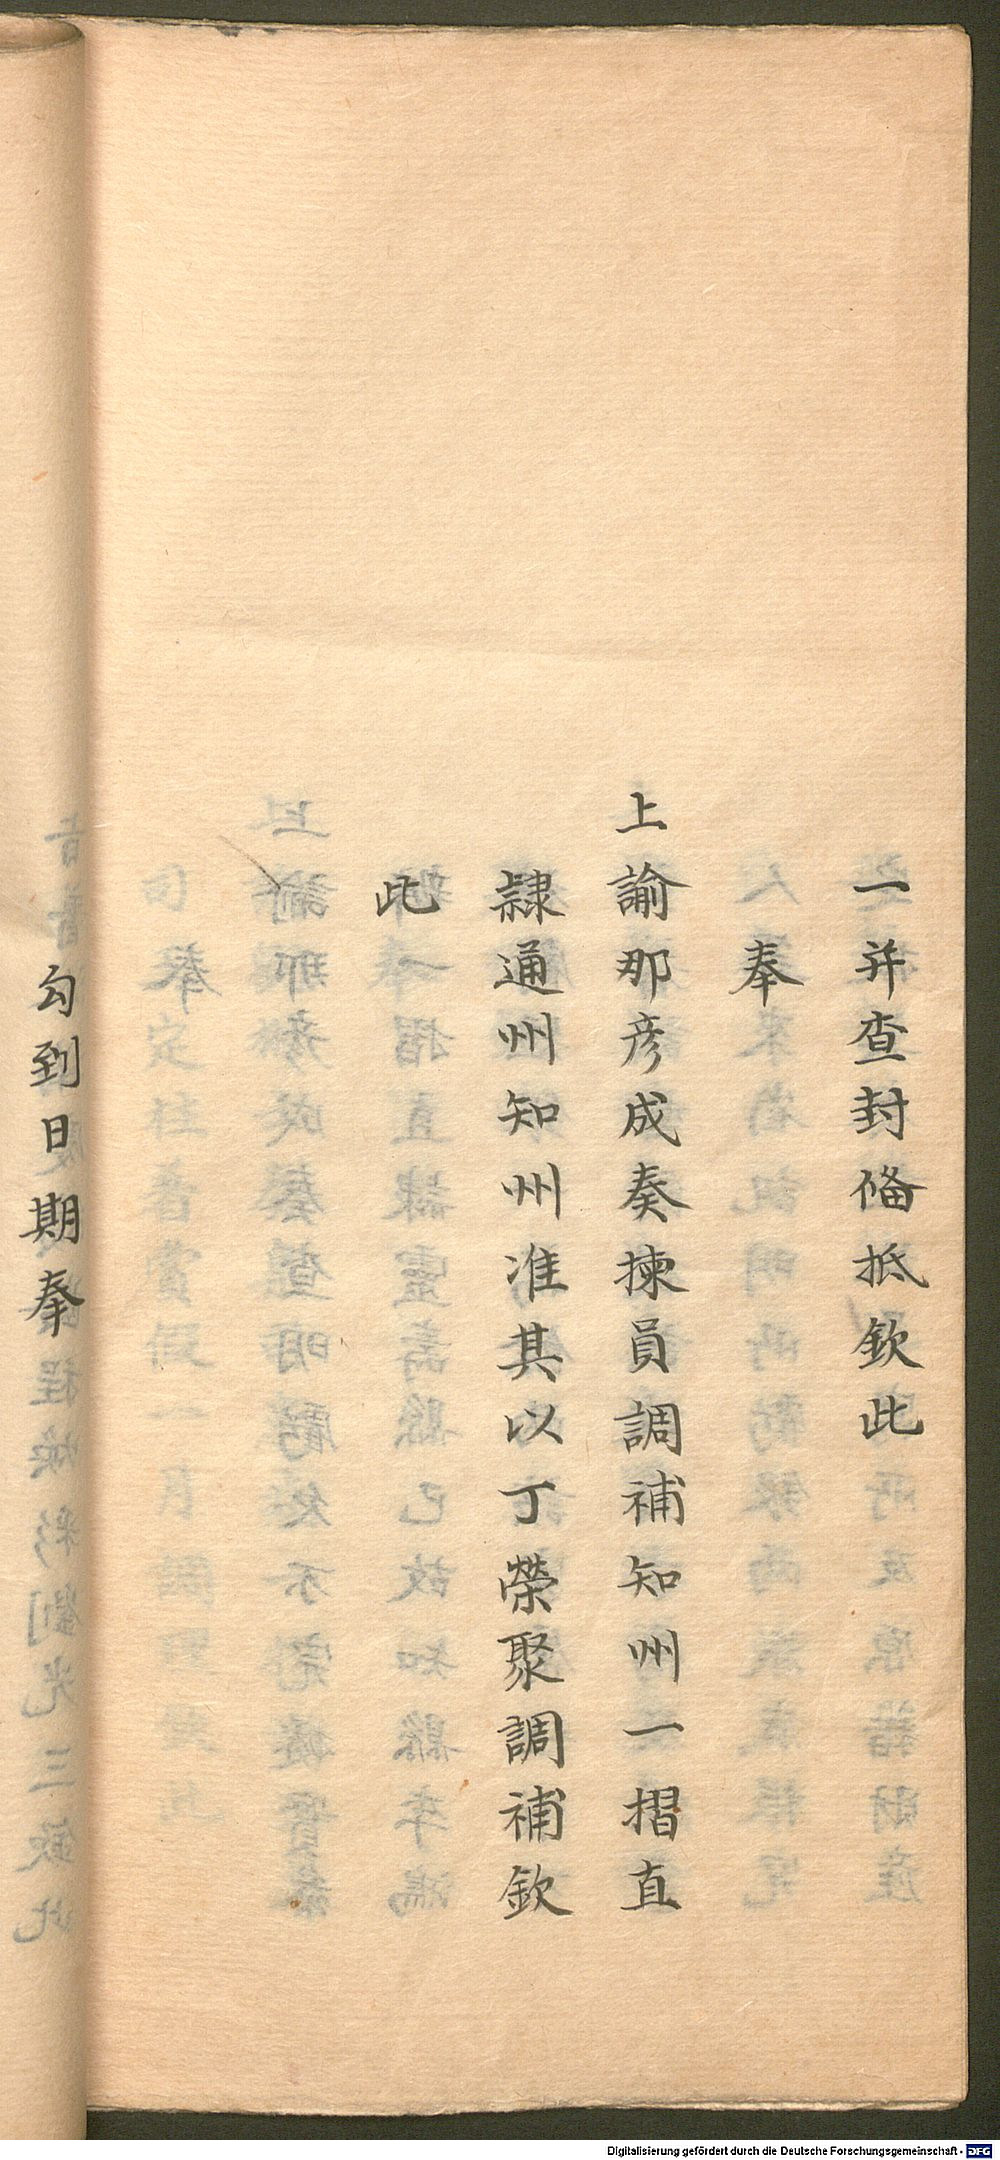 一并查封俻抵欽此
奉
上諭那彥成奏揀員調補知州一摺直
隷通州知州准其以丁榮聚調補欽
此
勾到日期奉
Digitalisierung gefördert durch die Deutsche Forschungsgemeinschaft - DFG